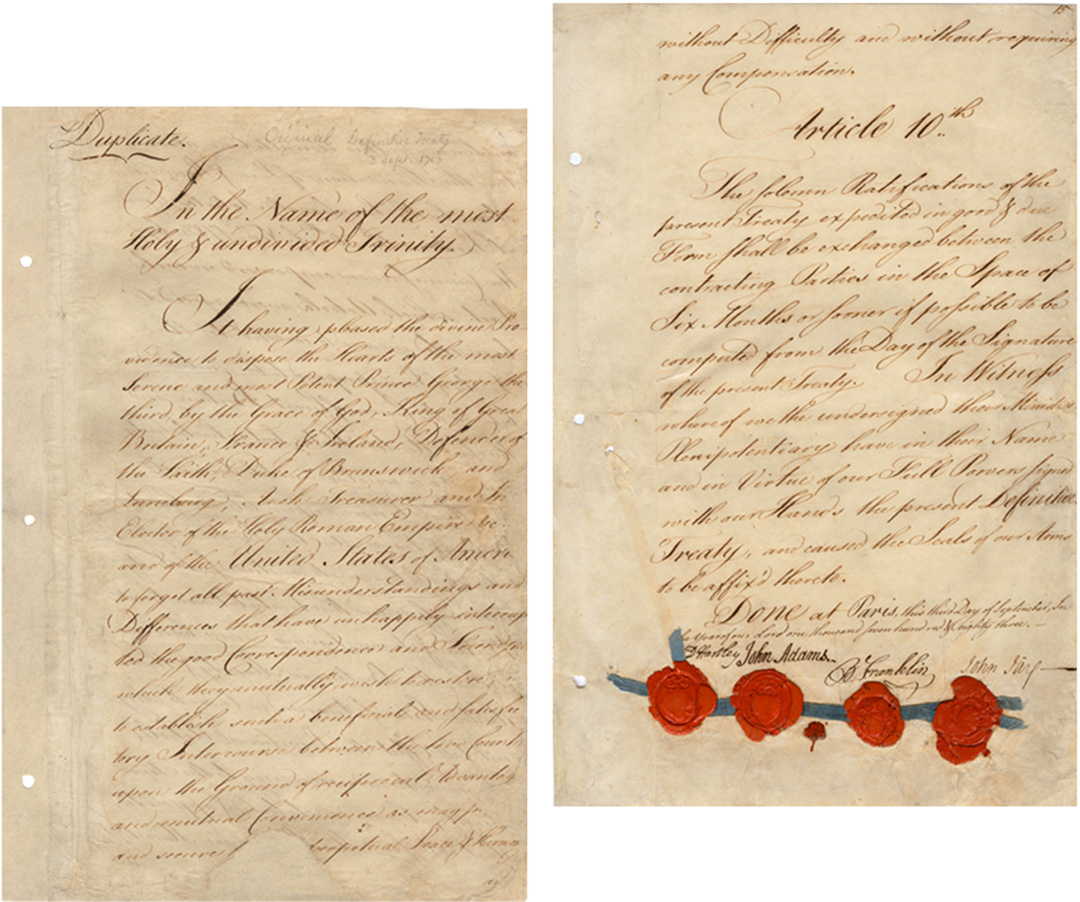 Duplicate.
Original Definitive Treaty
3 Sept. 1783
In the Name of the most
Holy & undivided Trinity.
It having pleased the divine Pro
vidence to dispose the Hearts of the most
Serene and most Potent Prince George the
third, by the Grace of God, King of Great
Britain, France & Ireland, Defender of
the Faith, Duke of Brunswick and
Luneburg, Arch Treasurer and
Elector of the Holy Roman Empire &c.
and of the United States of Ameri
to forget all past Misunderstandings and
Differences that have unhappily interrup
ted the good Correspondence and Friendship
which they mutually wish to restore;
to establish such a beneficial and satisfac
tory Intercourse between the two Count
upon the Ground of reciprocal Advantag
and mutual Convenience as may
and secure perpetual Peace & Harmon
15
without Difficulty and without requiring
any Compensation.
Article 10.th
The solemn Ratifications of the
present Treaty expedited in good & due
Form shall be exchanged between the
contracting Parties in the Space of
Six Months or sooner if possible to be
computed from the Day of the Signature
of the present Treaty. In Witness
whereof we the undersigned their Minist
Plenipotentiary have in their Name
and in Virtue of our Full Powers signed
with our Hands the present Definitive
Treaty, and caused the Seals of our Arms
to be affix'd thereto.
Done at Paris, this third Day of September, In
the Year of our Lord one thousand seven hundred & eighty three.—
D Hartley John Adams. B Franklin John Jay